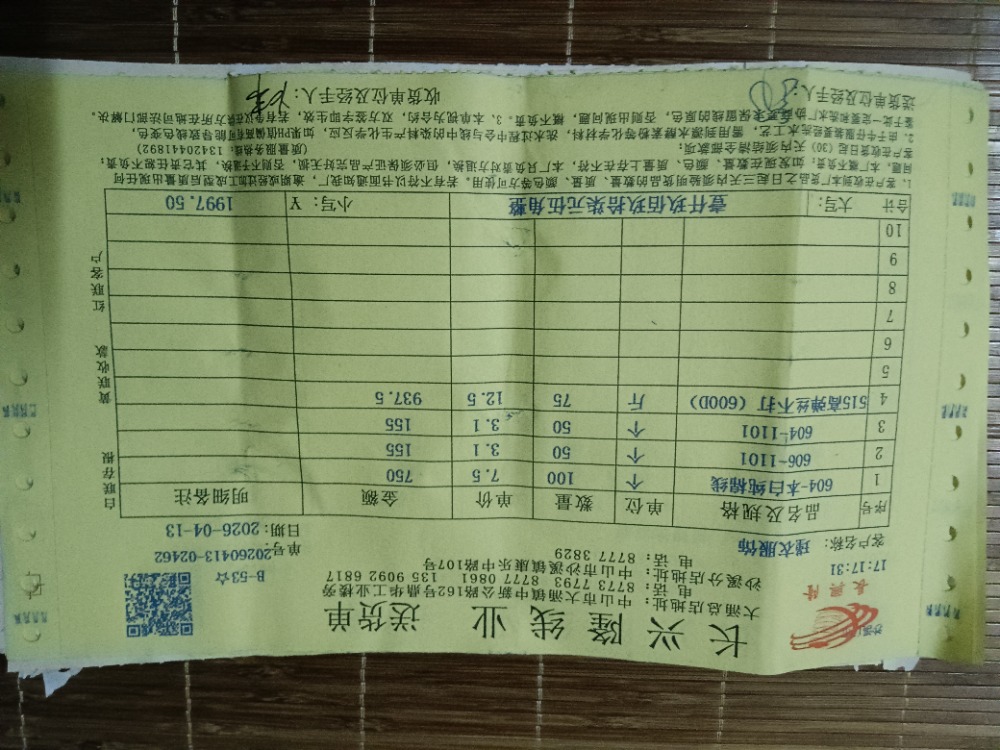 长兴隆线业 送货单
大涌总店地址：中山市大涌镇中新公路162号鼎华工业楼旁
电话：8773 7793 8777 0861 135 9092 6817
沙溪分店地址：中山市沙溪镇康乐中路107号
电话：8777 3829
B-53☆
17:17:31
客户名称：瑾衣服饰
单号：20260413-02462
日期：2026-04-13
序号 品名及规格 单位 数量 单价 金额 明细备注
1 604-本白纯棉线 个 100 7.5 750
2 606-1101 个 50 3.1 155
3 604-1101 个 50 3.1 155
4 515高弹丝不打（600D） 斤 75 12.5 937.5
5
6
7
8
9
10
合计 大写：壹仟玖佰玖拾柒元伍角整 小写：¥ 1997.50
白联存根 黄联收款 红联客户
1、客户在收到本厂货品之日起三天内须验明货品的数量、质量、颜色等方可使用，若有不符以书面通知我厂，逾期或经过加工成型后质量出现任何
问题，本厂概不负责，如发现在数量、颜色、质量上存在不符，本厂只负责对方退换，但必须保证产品完好无损，否则不予退换，其它责任恕不负责。
客户在收货日起（30）天内须结清全部货款；（质量服务热线：13420441892）
2、由于牛仔服装要经洗水工艺，需用到漂水酵素粉等化学材料，洗水过程中会与线中的染料产生化学反应，如果PH值偏高有可能导致线色变色，
鉴于此一定要和洗水厂协商要求保留线的原色，否则出现问题，概不负责。3、本单视为合约，双方签字即生效，若有争议在我方所在地司法部门解决。
送货单位及经手人：
收货单位及经手人：